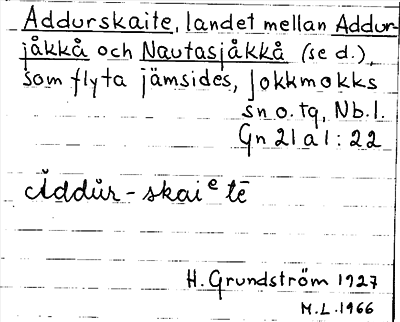 Addurskaite, landet mellan Addur-
jåkkå och Nautasjåkkå (se d.),
som flyta jämsides, Jokkmokks
sn o. tg, Nb.l.
Gn 21a1:22
Åddŭr-skaiᵉtē
H. Grundström 1927
M.L. 1966